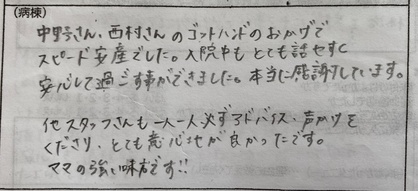 (病棟)
中野さん、西村さんのゴットハンドのおかげで
スピード安産でした。入院中もとても話せやすく
安心して過ごす事ができました。本当に感謝しています。
他スタッフさんも一人一人必ずアドバイス、声かけを
くださり、とても居心地が良かったです。
ママの強い味方です!!